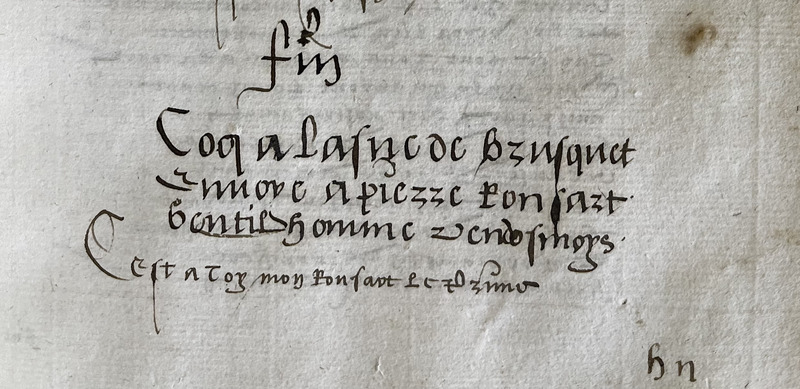 fin
Coq a Lasne de Brusquet
Envoye a pierre Ronsart
Gentilhomme vendosmoys
Cest a Toy mon Ronsart Le
hn